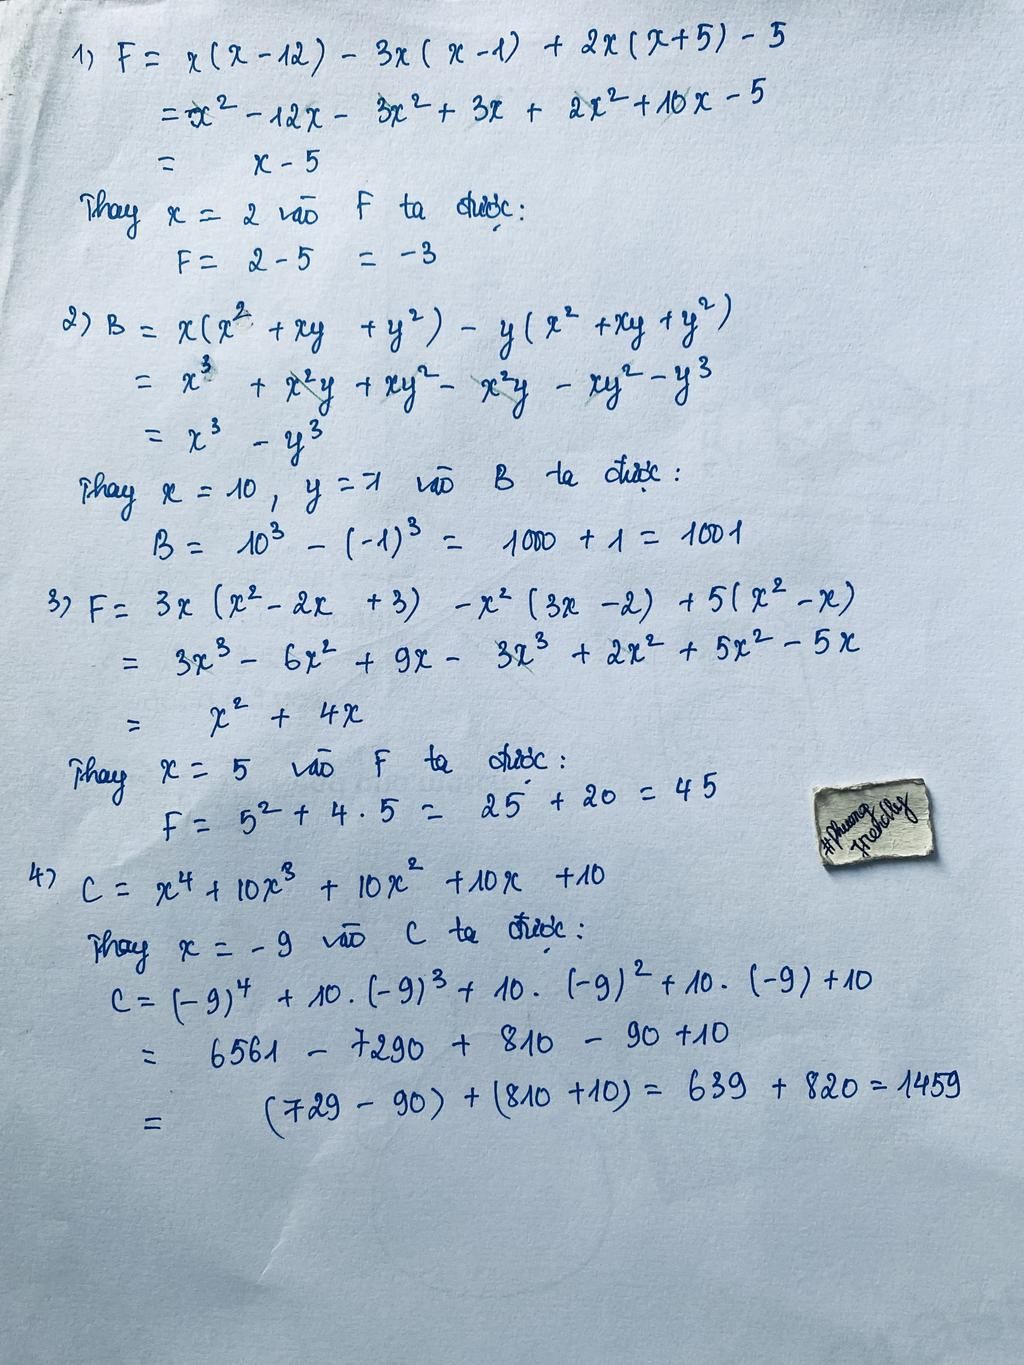 1) F = x(x-12) - 3x(x-1) + 2x(x+5) - 5
= x² - 12x - 3x² + 3x + 2x² + 10x - 5
= x - 5
Thay x = 2 vào F ta được:
F = 2 - 5 = -3
2) B = x(x² + xy + y²) - y(x² + xy + y²)
= x³ + x²y + xy² - x²y - xy² - y³
= x³ - y³
Thay x = 10, y = -1 vào B ta được:
B = 10³ - (-1)³ = 1000 + 1 = 1001
3) F = 3x(x² - 2x + 3) - x²(3x - 2) + 5(x² - x)
= 3x³ - 6x² + 9x - 3x³ + 2x² + 5x² - 5x
= x² + 4x
Thay x = 5 vào F ta được:
F = 5² + 4.5 = 25 + 20 = 45
#Phuong
friendly
4) C = x⁴ + 10x³ + 10x² + 10x + 10
Thay x = -9 vào C ta được:
C = (-9)⁴ + 10.(-9)³ + 10.(-9)² + 10.(-9) + 10
= 6561 - 7290 + 810 - 90 + 10
= (729 - 90) + (810 + 10) = 639 + 820 = 1459